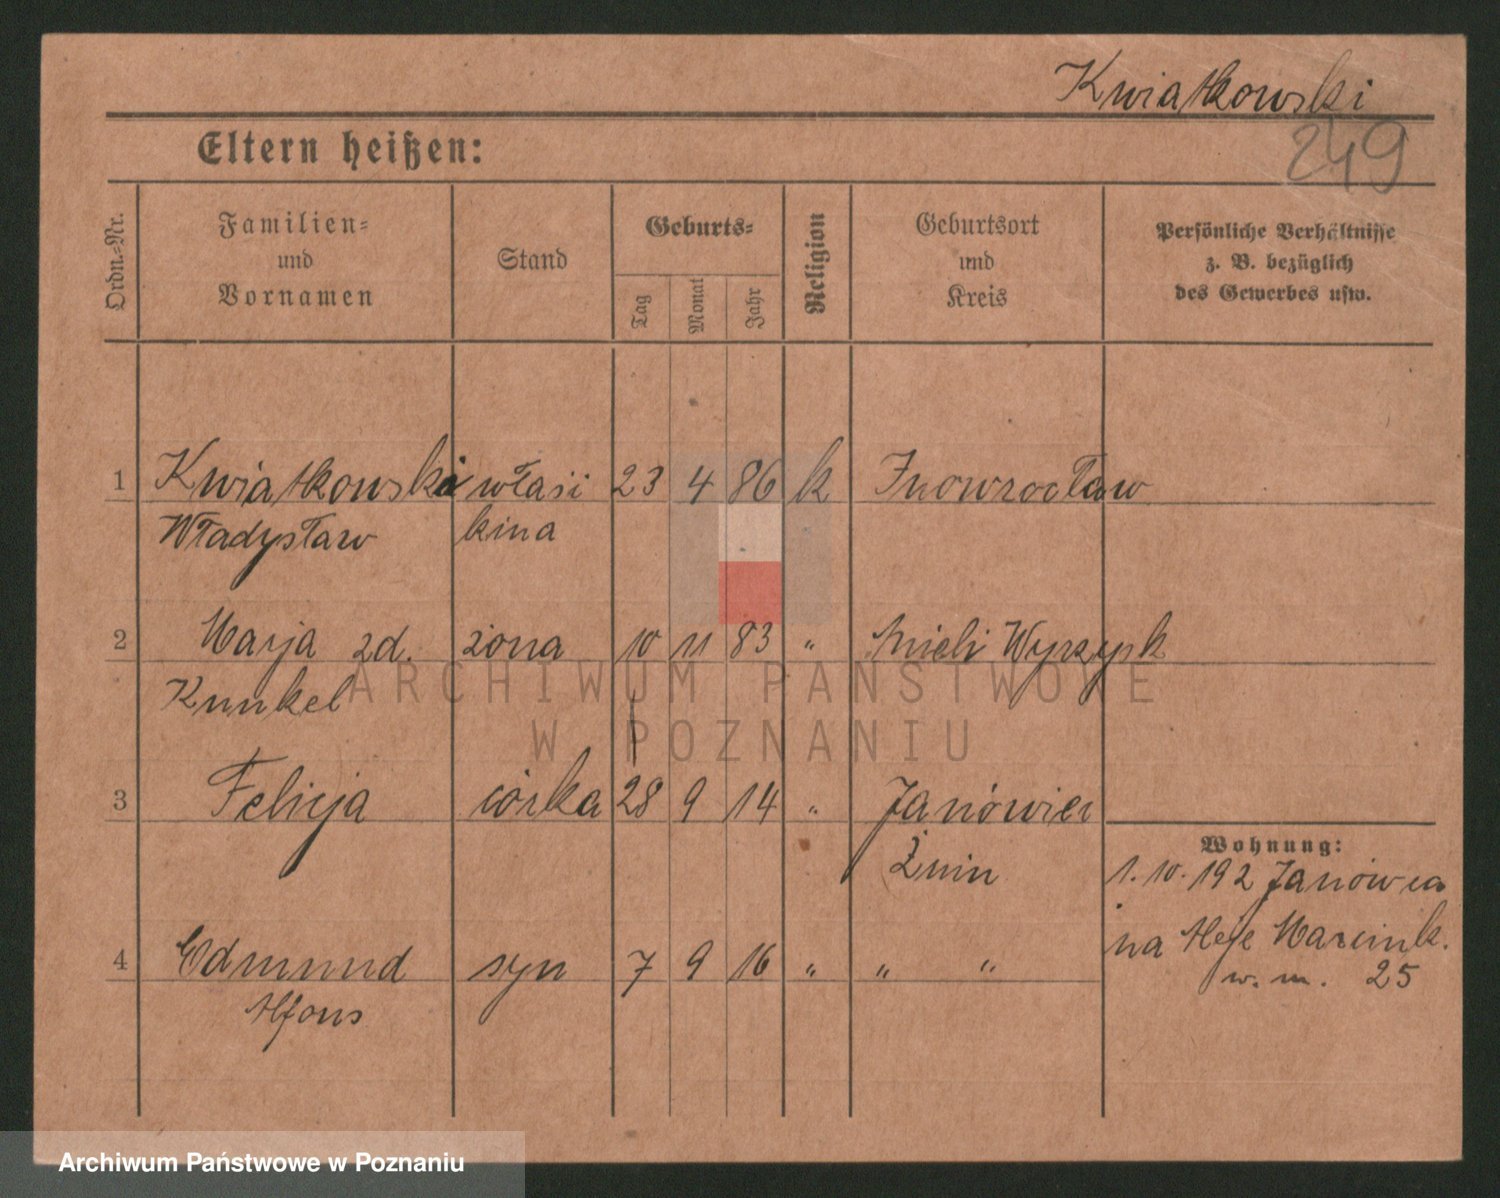 Kwiatkowski
249
Eltern heißen:
Ordn.-Nr.
Familien-
und
Vornamen
Stand
Geburts-
Tag
Monat
Jahr
Religion
Geburtsort
und
Kreis
Persönliche Verhältnisse
z. B. bezüglich
des Gewerbes usw.
1 Kwiatkowski właści 23 4 86 k Inowrocław
Władysław kina
2 Marja zd. żona 10 11 83 " Wyrzysk
Kunkel
3 Felicja córka 28 9 14 " Janówiec
Żnin
Wohnung:
1. 10. 192 Janówiec
na Marcink.
w. m. 25
4 Edmund syn 7 9 16 " " "
Alfons
ARCHIWUM PAŃSTWOWE
W POZNANIU
Archiwum Państwowe w Poznaniu